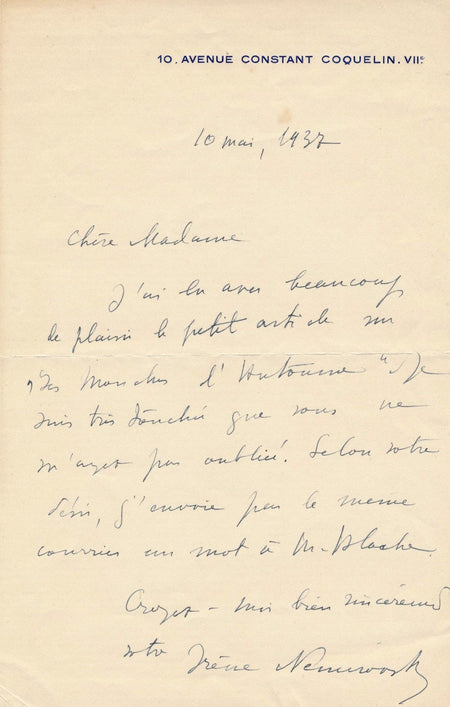 10, AVENUE CONSTANT COQUELIN. VIIᵉ
10 mai, 1937
Chère Madame
J'ai lu avec beaucoup
de plaisir le petit article sur
"Les Mouches d'Automne". Je
suis très touchée que vous ne
m'ayez pas oubliée. Selon votre
désir, j'envoie par le même
courrier un mot à M.
Croyez-moi bien sincèrement
votre Irène Némirovsky